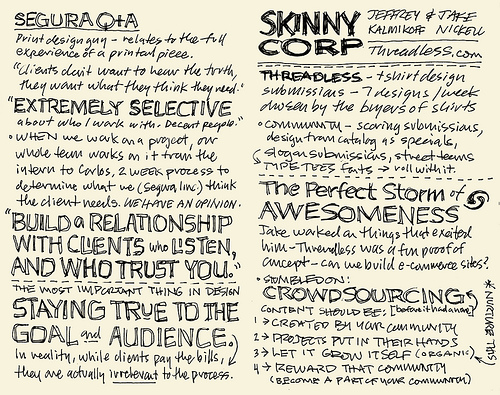 SEGURA Q+A
Print design guy - relates to the full
experience of a printed piece.
"Clients don't want to hear the truth,
they want what they think they need."
"EXTREMELY SELECTIVE
about who I work with. Decent people."
• WHEN we work on a project, our
whole team works on it from the
intern to Carlos, 2 week process to
determine what we (Segura Inc.) think
the client needs. WE HAVE AN OPINION.
"BUILD a RELATIONSHIP
WITH CLIENTS who LISTEN,
AND WHO TRUST YOU."
THE MOST IMPORTANT THING IN DESIGN
STAYING TRUE TO THE
GOAL and AUDIENCE.
In reality, while clients pay the bills,
they are actually irrelevant to the process.
SKINNY CORP
JEFFREY & JAKE
KALMIKOFF NICKELL
Threadless.com
THREADLESS - t-shirt design
submissions - 7 designs/week
chosen by the buyers of shirts
• COMMUNITY - scoring submissions,
design from catalog as specials,
slogan submissions, street teams
TYPE TEES fails → roll with it.
The Perfect Storm of
AWESOMENESS
Jake worked on things that excited
him - Threadless was a fun proof of
concept - can we build e-commerce sites?
• STUMBLED ON:
CROWDSOURCING
CONTENT SHOULD BE:
1 → CREATED BY YOUR COMMUNITY
2 → PROJECTS PUT IN THEIR HANDS
3 → LET IT GROW ITSELF (ORGANIC)
4 → REWARD THAT COMMUNITY
(BECOME A PART OF YOUR COMMUNITY)
* STILL NURTURE IT